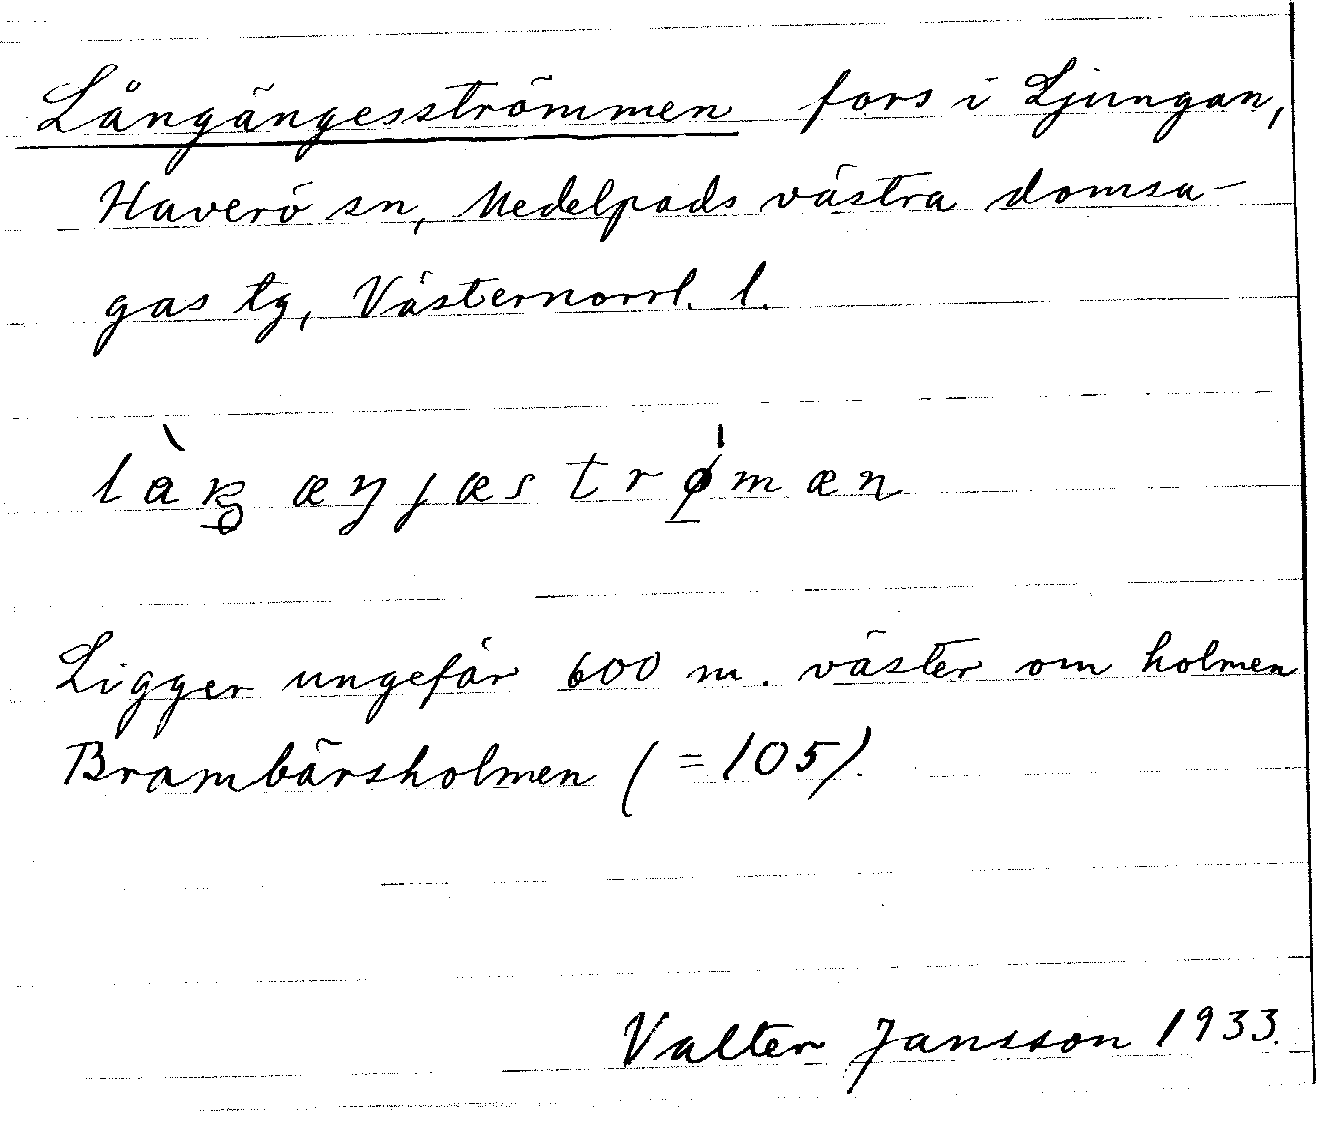 Långängesströmmen fors i Ljungan,
Haverö sn, Medelpads västra domsa-
gas tg, Västernorrl. l.
Ligger ungefär 600 m. väster om holmen
Brambärsholmen (=105).
Valter Jansson 1933.